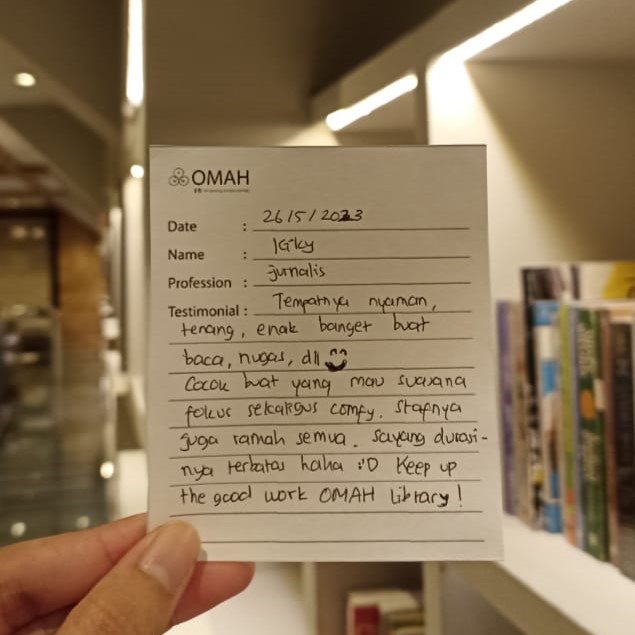 OMAH
Date : 26/5/2023
Name : IGky
Profession : jurnalis
Testimonial : Tempatnya nyaman,
tenang, enak banget buat
baca, nugas, dll
Cocok buat yang mau suasana
fokus sekaligus comfy. Stafnya
juga ramah semua. Sayang durasi-
nya terbatas haha :'D Keep up
the good work OMAH Library!